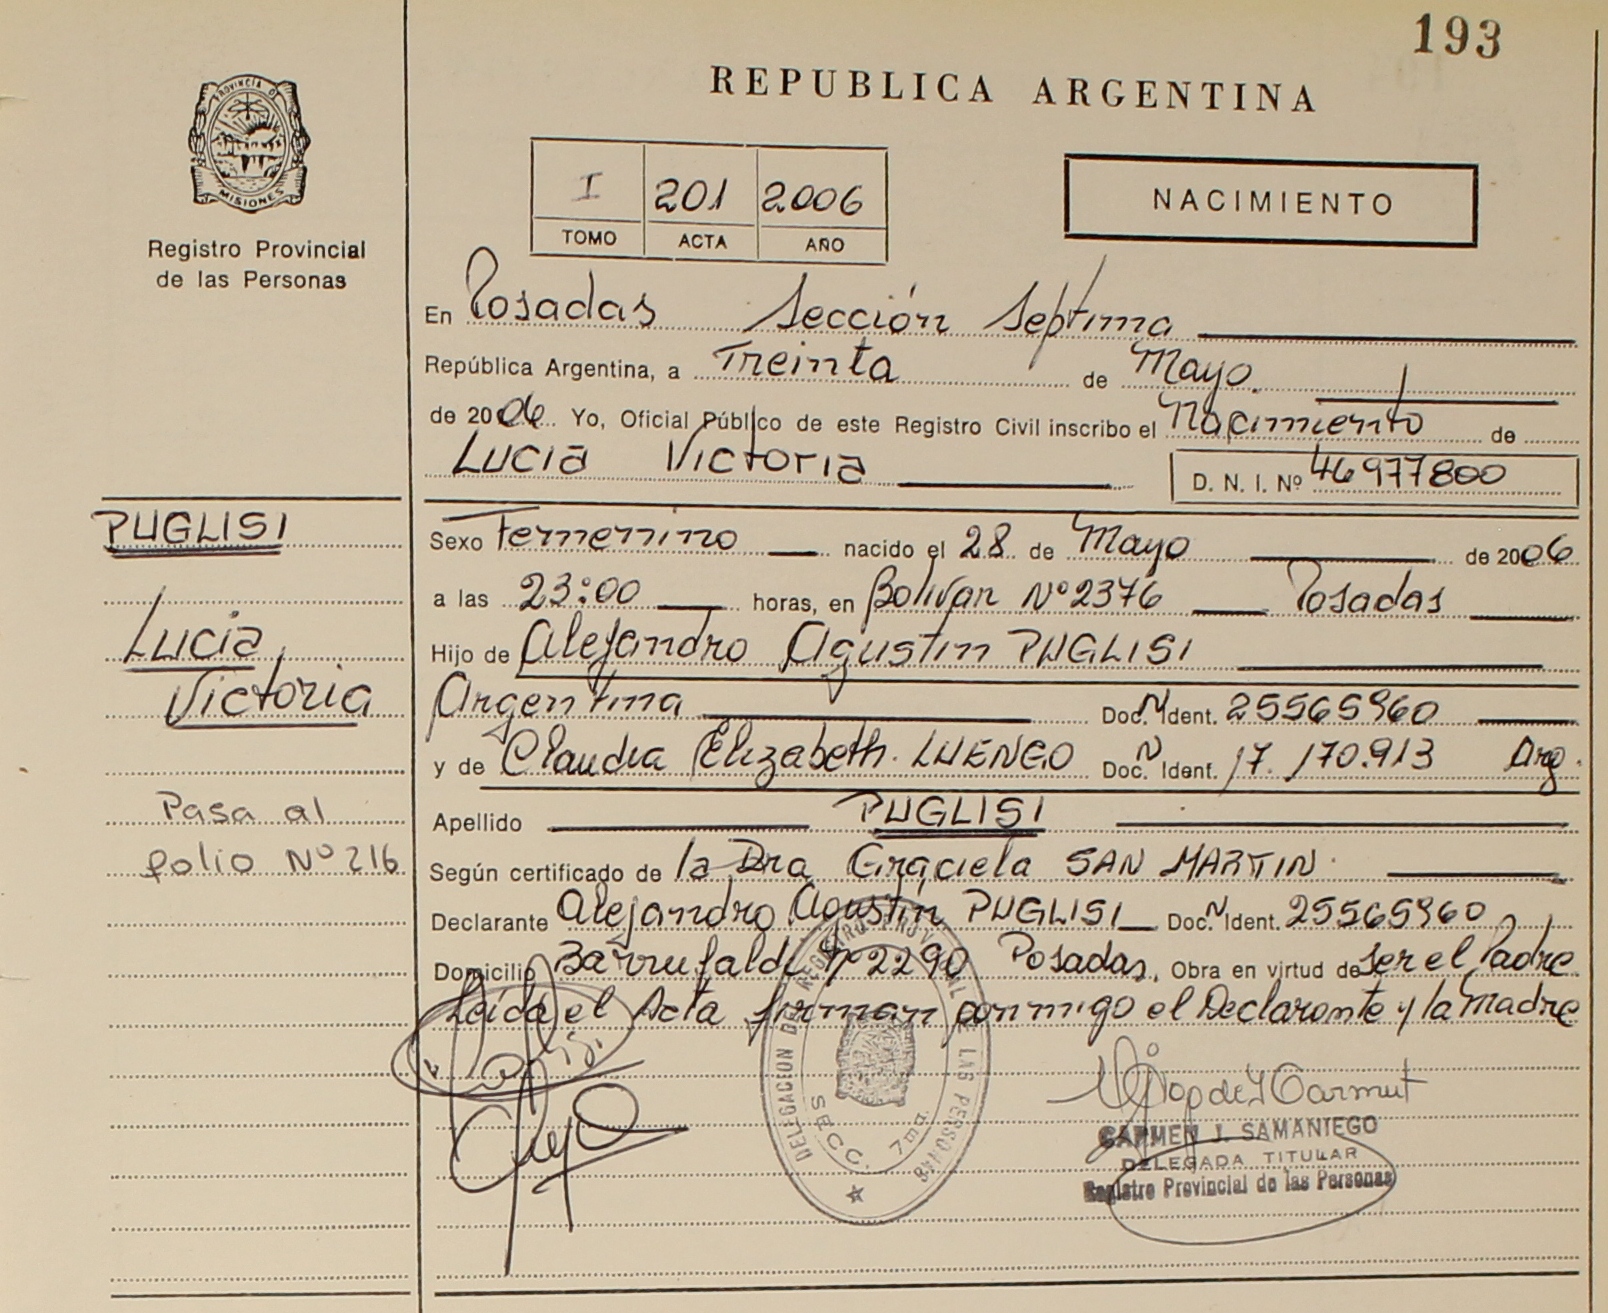 193
REPUBLICA ARGENTINA
PROVINCIA D
MISIONES
Registro Provincial
de las Personas
I 201 2006
TOMO ACTA AÑO
NACIMIENTO
En Posadas Sección Septima
República Argentina, a Treinta de Mayo.
de 2006 Yo, Oficial Público de este Registro Civil inscribo el Nacimiento de
Lucia Victoria D. N. I. Nº 46977800
PUGLISI
Lucia
Victoria
Pasa al
folio Nº 216
Sexo Femenino nacido el 28 de Mayo de 2006
a las 23:00 horas, en Bolivar Nº 2376 Posadas
Hijo de Alejandro Agustin PUGLISI
Argentina Doc. N Ident. 25565960
y de Claudia Elizabeth. LUENGO Doc. N Ident. 17.170.913 Arg.
Apellido PUGLISI
Según certificado de la Dra Graciela SAN MARTIN.
Declarante Alejandro Agustin PUGLISI Doc. N Ident. 25565960
Domicilio Barrufaldi Nº 2290 Posadas, Obra en virtud de ser el Padre
Leida el Acta firman conmigo el Declarante y la Madre
DELEGACION DEL REGISTRO PROVINCIAL DE LAS PERSONAS
SECC. 7ma.
CARMEN J. SAMANIEGO
DELEGADA TITULAR
Registro Provincial de las Personas